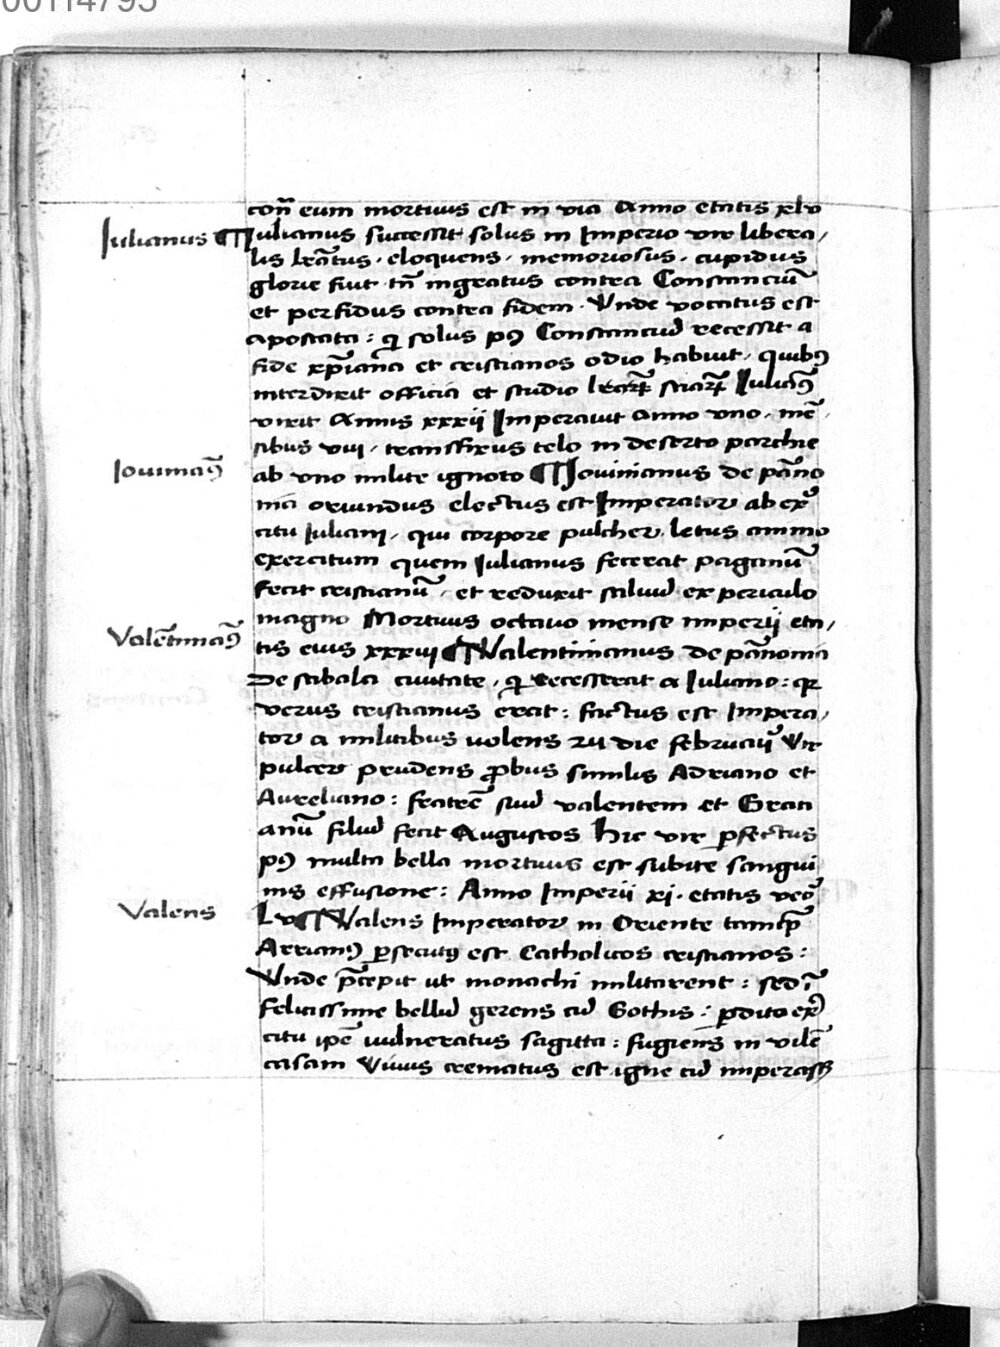 00114795
con̄ eum mortuus est in via Anno etatis xlv
Iulianus
¶ Iulianus successit solus in Imperio vir libera,
lis lr̄atus · eloquens · memoriosus · cupidus
glorie fuit tn̄ ingratus contra Constanciū
et perfidus contra fidem · Vnde vocatus est
apostata : solus Constanciū recessit a
fide xp̄iana et cristianos odio habuit · quibꝰ
interdixit officia et studio Iulianꝰ
vixit Annis xxxii Imperauit anno vno · mē
sibus viii · transfixus telo in deserto parthie
ab vno milite ignoto ¶ Iouinianus de pān̄o
Iouinianꝰ
nia oriundus electus est Imperator ab ex̄
citu Iuliani · qui corpore pulcher · letus animo
exercitum quem Iulianus fecerat paganū
fecit cristianū · et reduxit saluū ex periculo
magno Mortuus octauo mense imperii eta,
Valētinianꝰ
tis eius xxxiii ¶ Valentinianus de pān̄onia
De sabala ciuitate · recesserat a Iuliano :
verus cristianus erat : factus est Impera,
tor a militibus uolens die februarii Vir
pulcer prudens ꝓbus similis Adriano et
Aureliano : fratrē suū valentem et Grati
anū filiū fecit Augustos Hic vir ꝑfectus
pꝰ multa bella mortuus est subite sangui
nis effusione : Anno Imperii xi · etatis vero
Valens
Lv ¶ Valens Imperator in Oriente
Arrianꝰ ꝑsecutꝰ est Catholicos cristianos :
Vnde p̄cepit ut monachi militarent : sed ī
felicissime bellū gerens cū Gothis : ꝑdito ex̄
citu ip̄e uulneratus sagitta : fugiens in vilē
casam Viuus crematus est igne cū imperass;